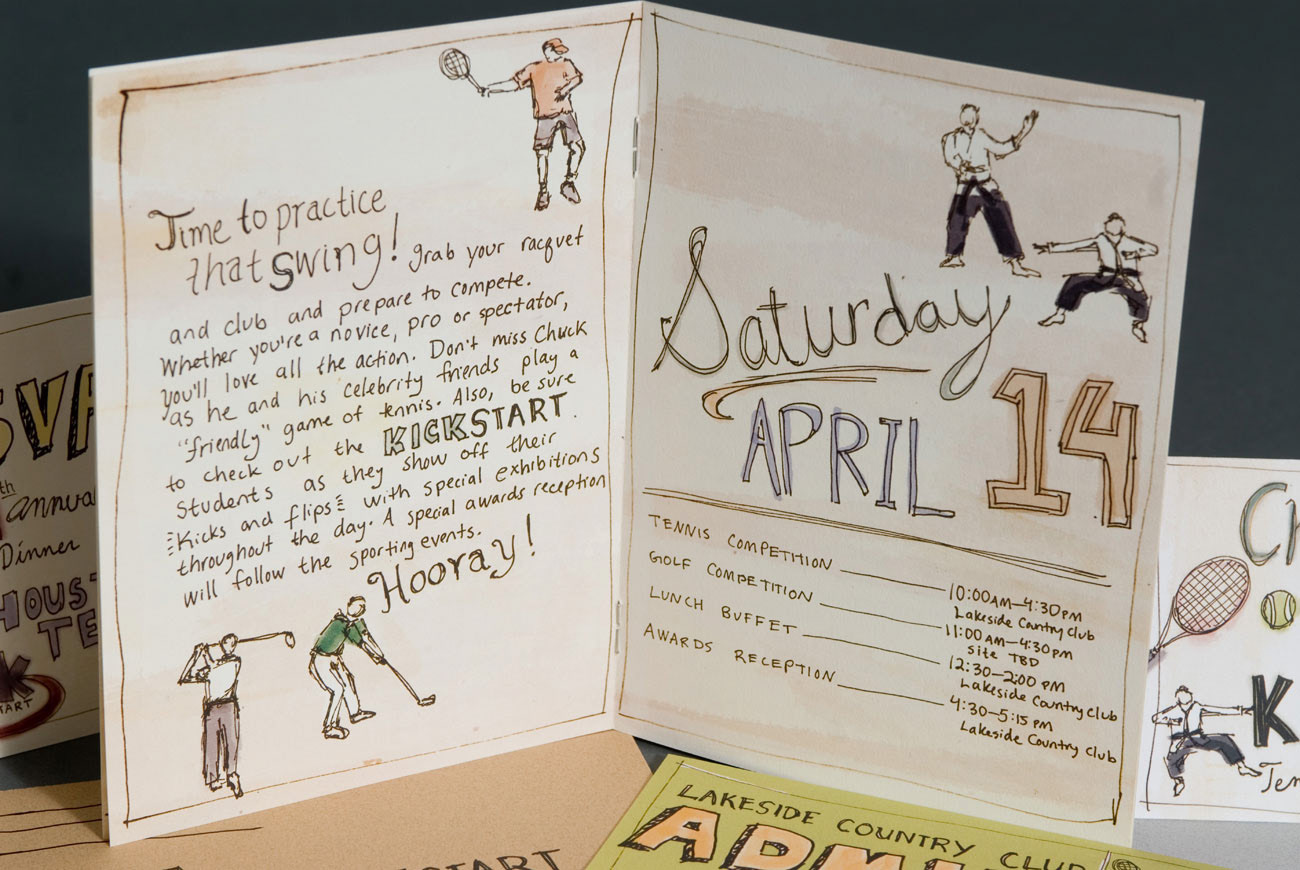 Time to practice
that Swing! grab your racquet
and club and prepare to compete.
Whether you're a novice, pro or spectator,
you'll love all the action. Don't miss Chuck
as he and his celebrity friends play a
"friendly" game of tennis. Also, be sure
to check out the KICKSTART.
Students as they show off their
Kicks and flips with special exhibitions
throughout the day. A special awards reception
will follow the sporting events.
Hooray!
Saturday
APRIL 14
TENNIS COMPETITION 10:00AM-4:30PM
Lakeside Country Club
GOLF COMPETITION 11:00AM-4:30PM
site TBD
LUNCH BUFFET 12:30-2:00 PM
Lakeside Country Club
AWARDS RECEPTION 4:30-5:15 PM
Lakeside Country Club
SVP
th
annual
Dinner
HOUST
TE
K
START
Ch
K
Ten
START
LAKESIDE COUNTRY CLUB
ADMI